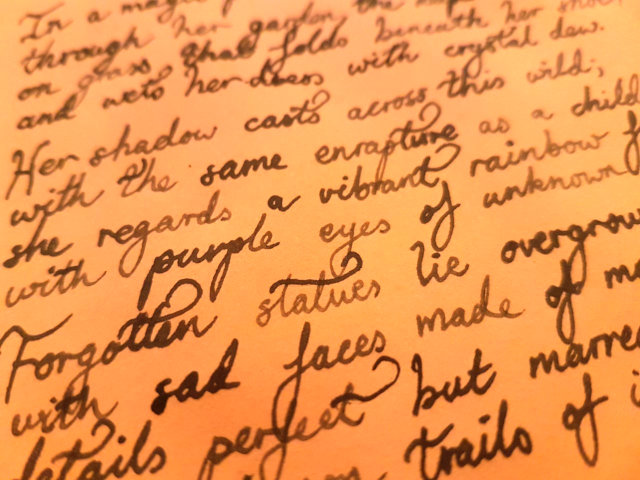 In a magic
through her garden the
on grass that folds beneath her
and wets her doers with crystal dew.
Her shadow casts across this wild;
with the same enrapture as a child
she regards a vibrant rainbow
with purple eyes of unknown
Forgotten statues lie overgrow
with sad faces made of
details perfect but marre
trails of